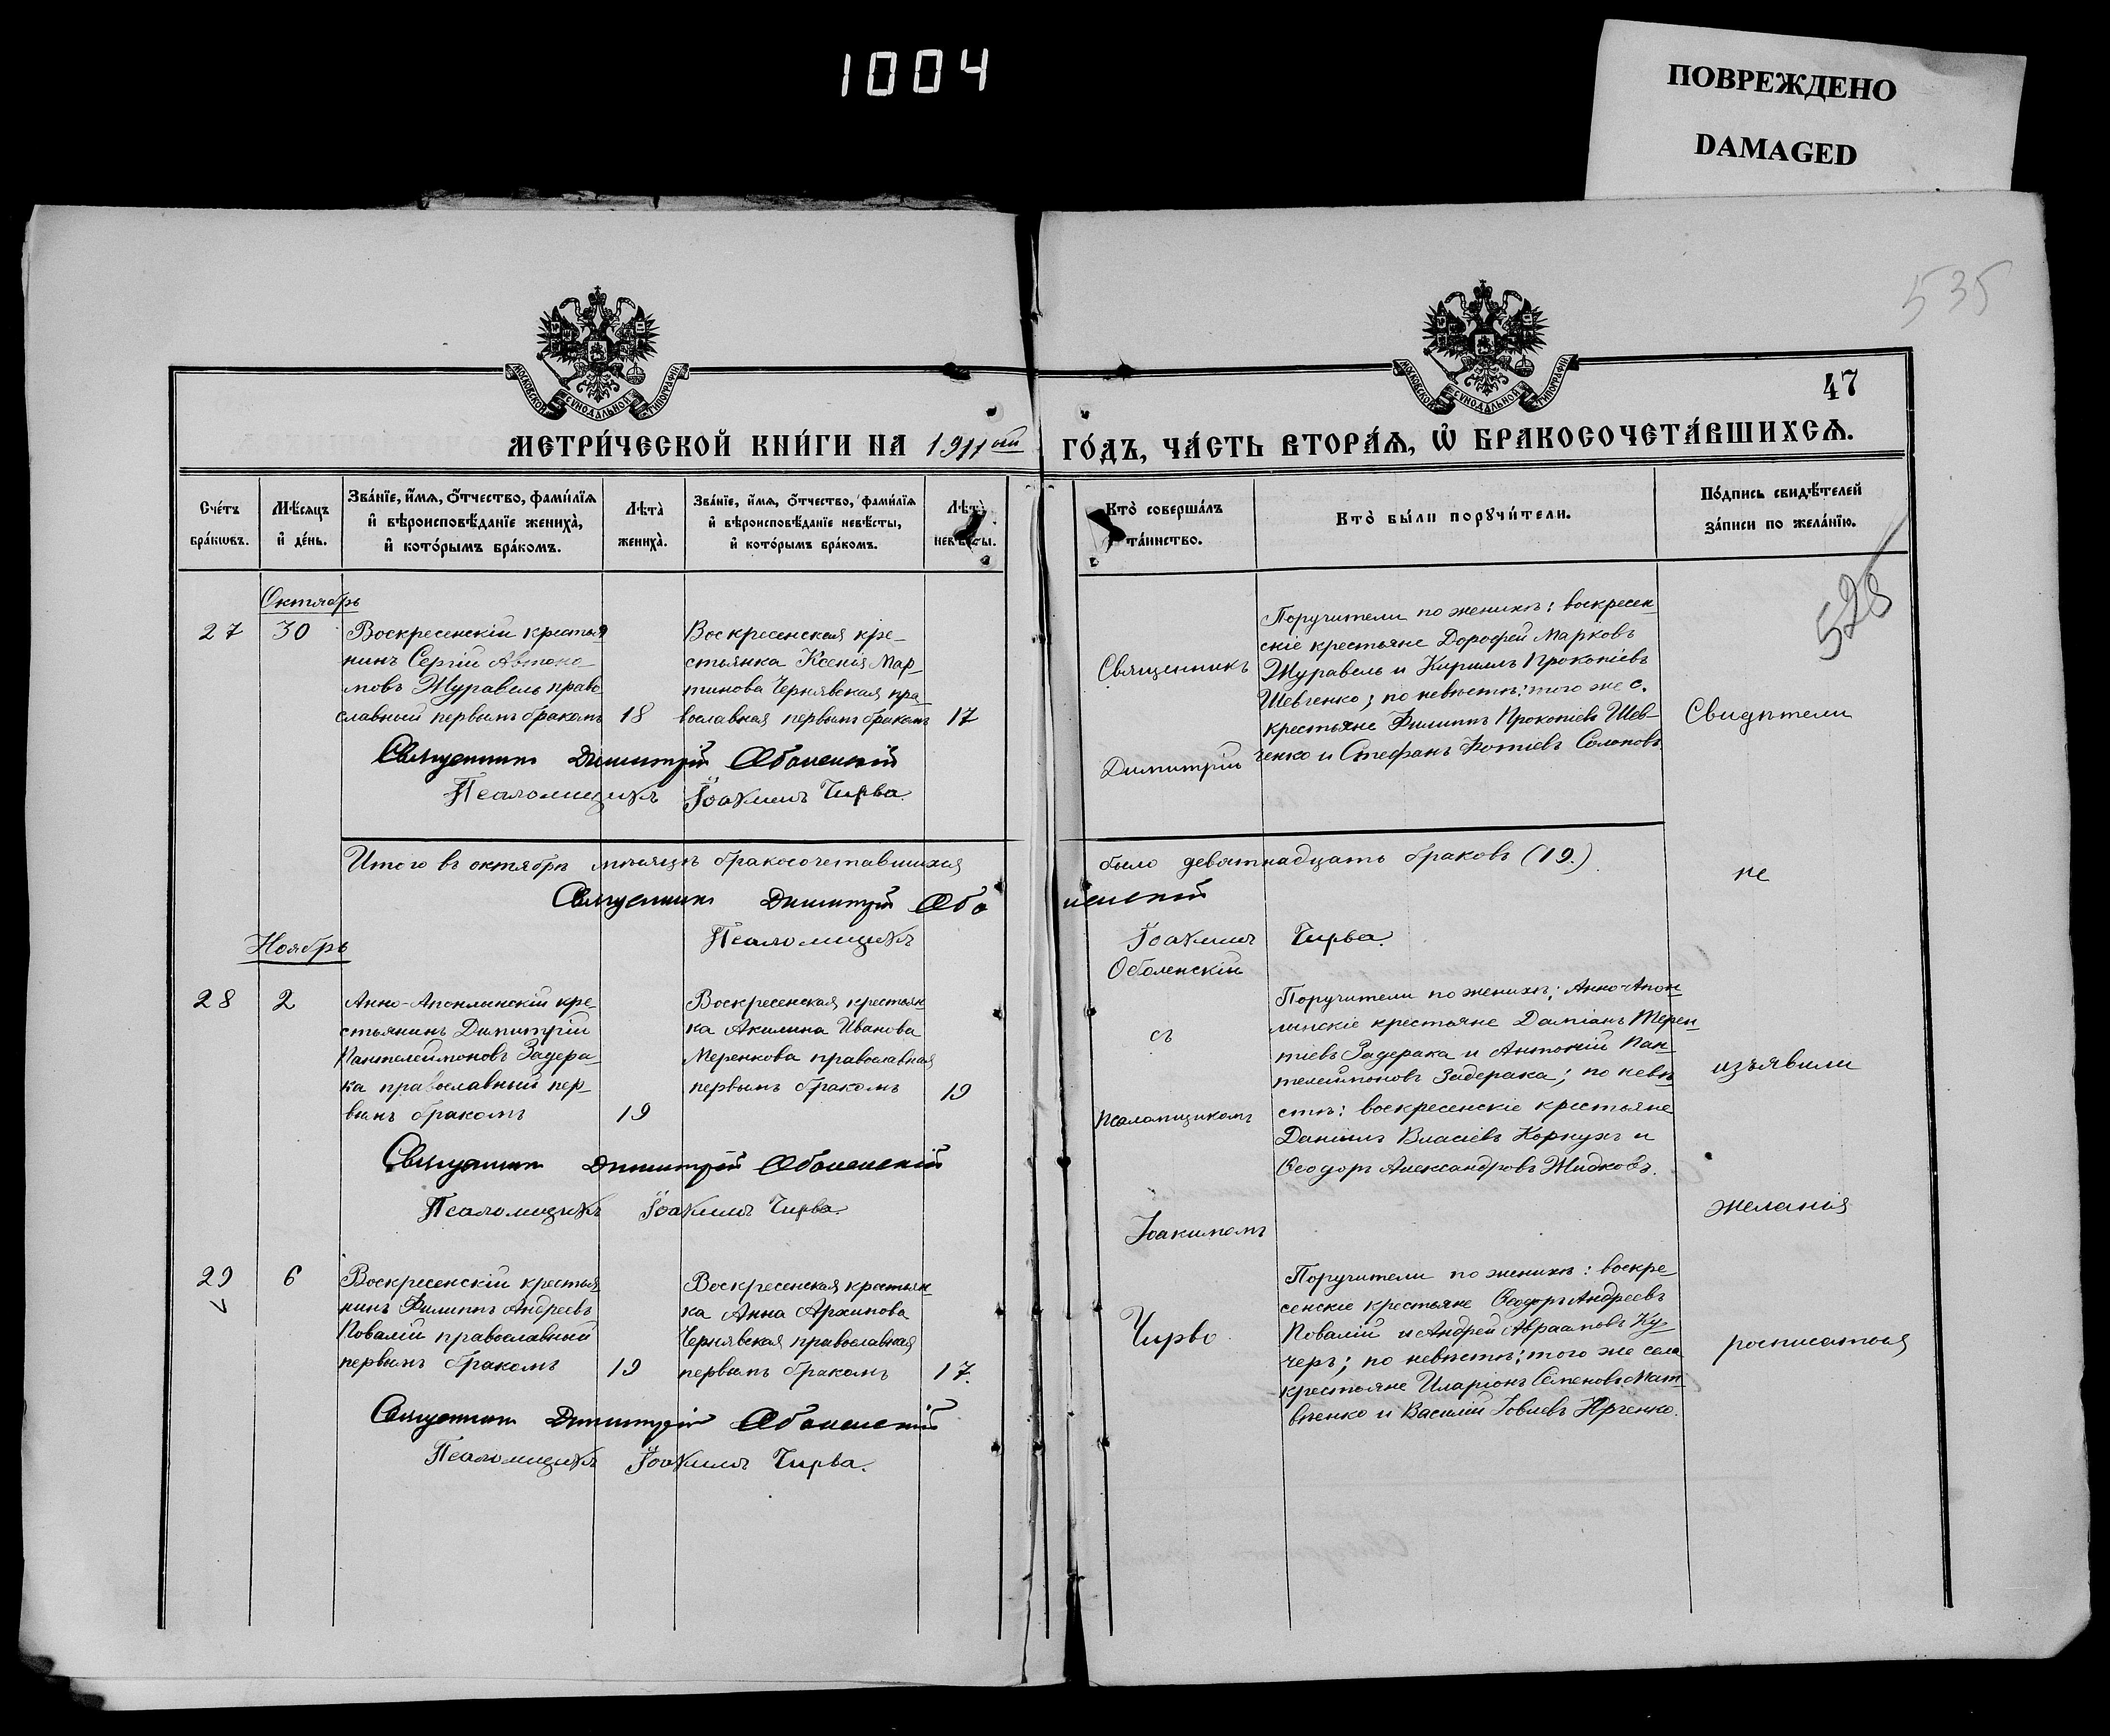 1004
ПОВРЕЖДЕНО
DAMAGED
535
МОСКОВСКОЙ СѴНОДАЛЬНОЙ ТИПОГРАФІИ
МОСКОВСКОЙ СѴНОДАЛЬНОЙ ТИПОГРАФІИ
47
МЕТРИ́ЧЕСКОЙ КНИ́ГИ НА 1911ый ГО́ДЪ, ЧА́СТЬ ВТОРА́Ѧ, Ѡ҆ БРАКОСОЧЕТА́ВШИХСѦ.
Сче́тъ бра́кѡвъ.
Мѣ́сѧцъ и҆ де́нь.
Зва́нїе, и҆́мѧ, ѻ҆́тчество, фами́лїѧ
и҆ вѣроисповѣ́данїе жениха̀,
и҆ кото́рымъ бра́комъ.
Лѣта̀ жениха̀.
Зва́нїе, и҆́мѧ, ѻ҆́тчество, фами́лїѧ
и҆ вѣроисповѣ́данїе невѣ́сты,
и҆ кото́рымъ бра́комъ.
Лѣта̀ невѣ́сты.
Кто̀ соверша́лъ та́инство.
Кто̀ бы́ли порꙋчи́тели.
По́дпись свидѣ́телей
за́писи по жела́нїю.
528
Октябрь
27 30
Воскресенскій крестья
нинъ Сергій Автоно
мовъ Журавель право
славный первымъ бракомъ 18
Воскресенская кре-
стьянка Ксенія Мар-
тинова Чернявская пра
вославная первымъ бракомъ 17
Священникъ
Димитрій
Поручители по женихѣ: воскресен-
скіе крестьяне Дорофей Марковъ
Журавель и Кириллъ Прокопіевъ
Шевченко; по невѣстѣ: того же с.
крестьяне Филиппъ Прокопіевъ Шев-
ченко и Стефанъ Фотіевъ Солоповъ
Свидѣтели
Священникъ Димитрій Оболенскій
Псаломщикъ Іоакимъ Чирва.
Итого въ октябрѣ мѣсяцѣ бракосочетавшихся было девятнадцать браковъ (19.)
не
Священникъ Димитрій Оболенскій
Псаломщикъ Іоакимъ Чирва.
Ноябрь
Оболенскій
28 2
Анно-Апонлинскій кре-
стьянинъ Димитрій
Пантелеймоновъ Задера-
ка православный пер-
вымъ бракомъ 19
Воскресенская крестьян-
ка Акилина Иванова
Меренкова православная
первымъ бракомъ 19
съ
псаломщикомъ
Поручители по женихѣ: Анно-Апон-
линскіе крестьяне Даміанъ Терен-
тіевъ Задерака и Антоній Пан-
телеймоновъ Задерака; по невѣ
стѣ: воскресенскіе крестьяне
Даніилъ Власіевъ Коркухъ и
Ѳеодоръ Александровъ Жидковъ.
изъявили
Священникъ Димитрій Оболенскій
Псаломщикъ Іоакимъ Чирва.
Іоакимомъ
желанія
29 6
Воскресенскій крестья
нинъ Филиппъ Андреевъ
Повалій православный
первымъ бракомъ 19
Воскресенская крестьян-
ка Анна Архипова
Чернявская православная
первымъ бракомъ 17.
Чирво
Поручители по женихѣ: воскре-
сенскіе крестьяне Ѳеодоръ Андреевъ
Повалій и Андрей Авраамовъ Ку-
черъ; по невѣстѣ: того же села
крестьяне Иларіонъ Семеновъ Мат-
вѣенко и Василій Іовлевъ Юрченко.
росписаться
Священникъ Димитрій Оболенскій
Псаломщикъ Іоакимъ Чирва.